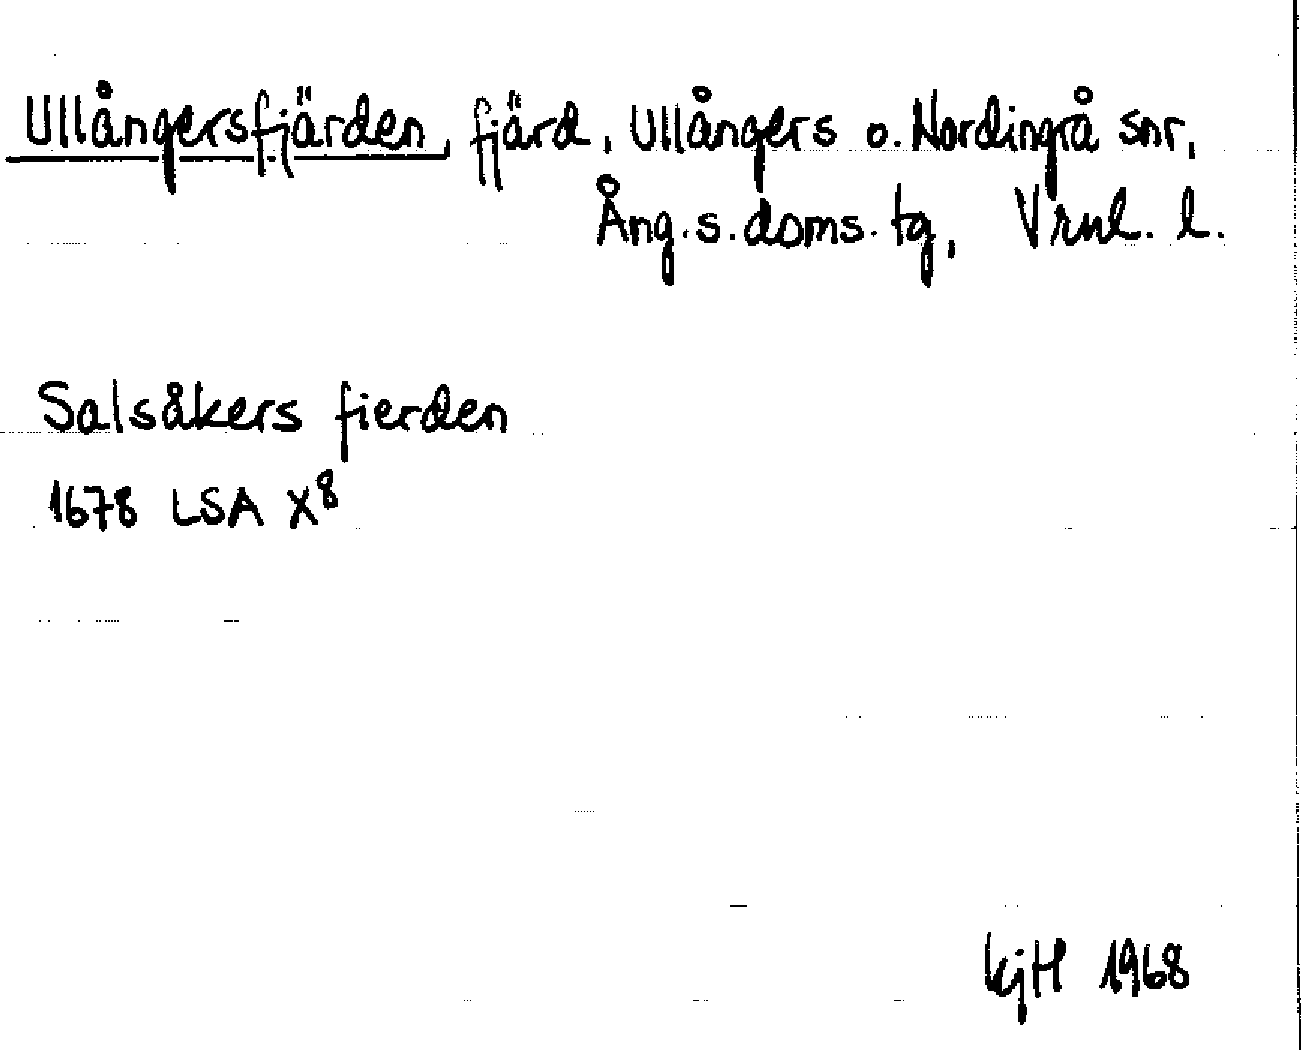 Ullångersfjärden, fjärd, Ullångers o. Nordingrå snr,
Ång.s.doms.tg, Vrnl. l.
Salsåkers fierden
1678 LSA X8
KjH 1968